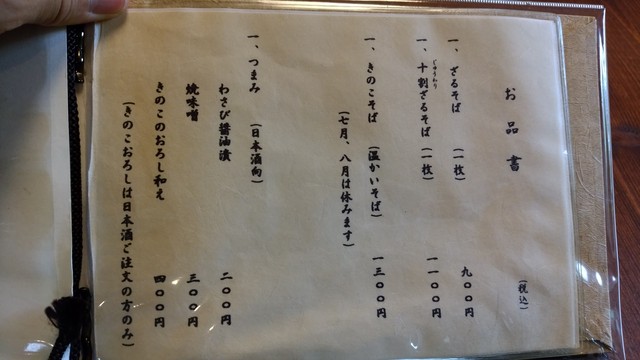 お品書
(税込)
一、ざるそば (一枚) 九〇〇円
一、十割ざるそば (一枚) 一一〇〇円
じゅうわり
一、きのこそば (温かいそば) 一三〇〇円
(七月、八月は休みます)
一、つまみ (日本酒向)
わさび醤油漬 二〇〇円
焼味噌 三〇〇円
きのこのおろし和え 四〇〇円
(きのこおろしは日本酒ご注文の方のみ)